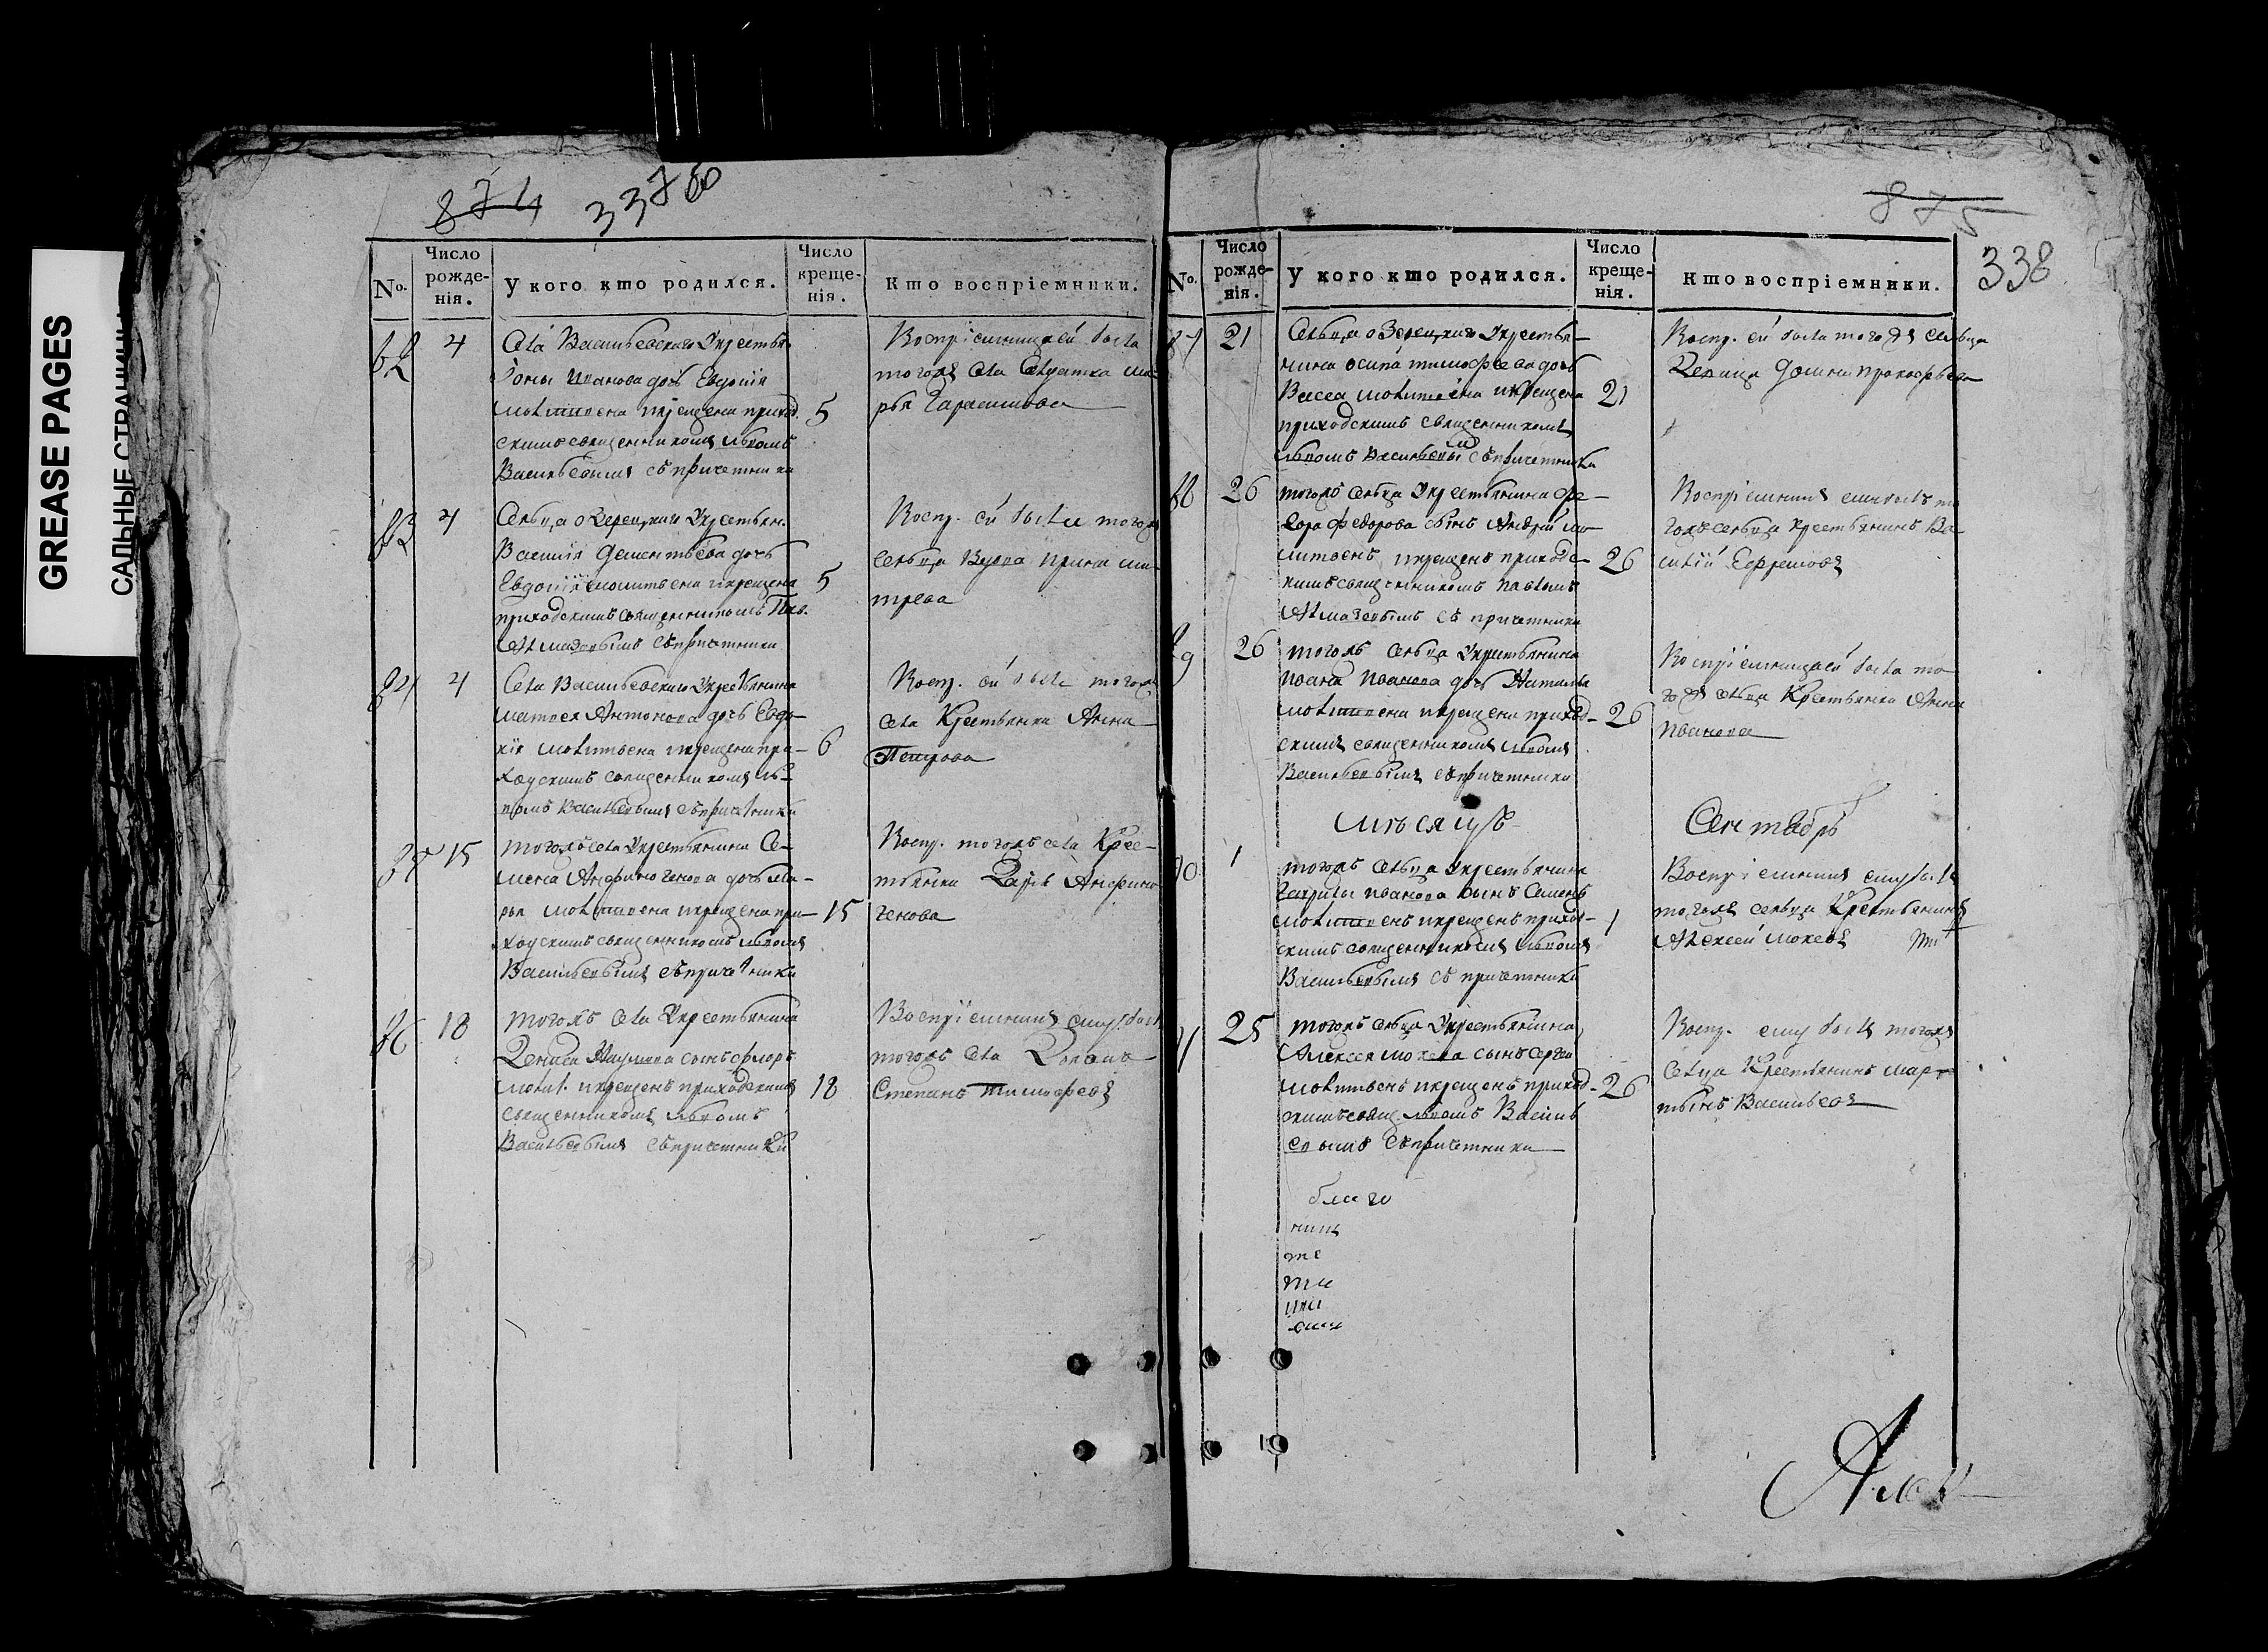 GREASE PAGES
САЛЬНЫЕ СТРАНИЦЫ
874 337 об
№. Число рожденія. У кого кто родился. Число крещенія. Кто воспріемники.
82 4
Села Васильевскаго Укрестья.
Іоны Иванова дочь Евдокія
молитвена икрещена приход.
скимъ священникомъ Львомъ
Васильевымъ съ причетники
5
Воспріемницей была
тогожъ села Солдатка Ма-
рья Гарасимова
83 4
Сельца Озерецкаго Укрестьян.
Василія Дементьева дочь
Евдокія молитвена икрещена
приходскимъ священникомъ Пав.
Алмазовымъ съ причетники
5
Воспр. ей была тогожъ
сельца Вдова Ирина Ми-
трева
84 4
Села Васильевскаго Укрестьянина
Матвея Антонова дочь Евдо-
кія молитвена икрещена при-
ходскимъ священникомъ Ль-
вомъ Васильевымъ съ причетники
6
Воспр. ей была тогожъ
села Крестьянка Анна
Петрова
85 15
тогожъ села Укрестьянина Се-
мена Анфиногенова дочь Ма-
рья молитвена икрещена при-
ходскимъ священникомъ Львомъ
Васильевымъ съ причетники
15
Воспр. тогожъ села Крес-
тьянка Дарья Анфино-
генова
86 18
тогожъ села Укрестьянина
Дениса Наумова сынъ Флоръ
молит. икрещенъ приходскимъ
священникомъ Львомъ
Васильевымъ съ причетники
18
Воспріемникъ ему былъ
тогожъ села
Степанъ Тимофеевъ
875
338
№. Число рожденія. У кого кто родился. Число крещенія. Кто воспріемники.
87 21
Сельца Озерецкаго Укрестья-
нина Осипа Тимофеева дочь
Васса молитвена икрещена
приходскимъ священникомъ
Львомъ Васильевымъ съ причетники
21
Воспр. ей была тогожъ сельца
Девица Домна Прокофьева
88 26
тогожъ сельца Укрестьянина Фе-
дора Федорова сынъ Андрей мо-
литвенъ икрещенъ приходс-
кимъ священникомъ Павломъ
Алмазовымъ съ причетники
26
Воспріемникъ ему былъ то-
гожъ сельца крестьянинъ Ва-
силій Ефремовъ
89 26
тогожъ сельца Укрестьянина
Ивана Иванова дочь Наталья
молитвена икрещена приход-
скимъ священникомъ Львомъ
Васильевымъ съ причетники
26
Воспріемницей была то-
гожъ сельца Крестьянка Анна
Иванова
Месяцъ Сентябрь
90 1
тогожъ сельца Укрестьянина
Гаврилы Иванова сынъ Семенъ
молитвенъ икрещенъ приход-
скимъ священникомъ Львомъ
Васильевымъ съ причетники
1
Воспріемникъ ему былъ
тогожъ сельца Крестьянинъ
Алексей Мокеевъ
91 25
тогожъ сельца Укрестьянина
Алексея Мокеева сынъ Сергей
молитвенъ икрещенъ приход-
скимъ священ. Львомъ Василь
евымъ съ причетники
26
Воспр. ему былъ тогожъ
сельца Крестьянинъ Мар-
тынъ Васильевъ
благо